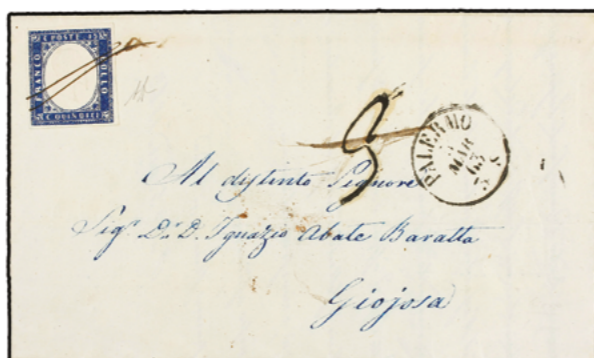 C. POSTE 15
FRANCO
BOLLO
C. QUINDICI
3
PALERMO
MAR
63
3 S
Al distinto Signore
Sigr. Dn. D. Ignazio Abate Baratta
Giojosa